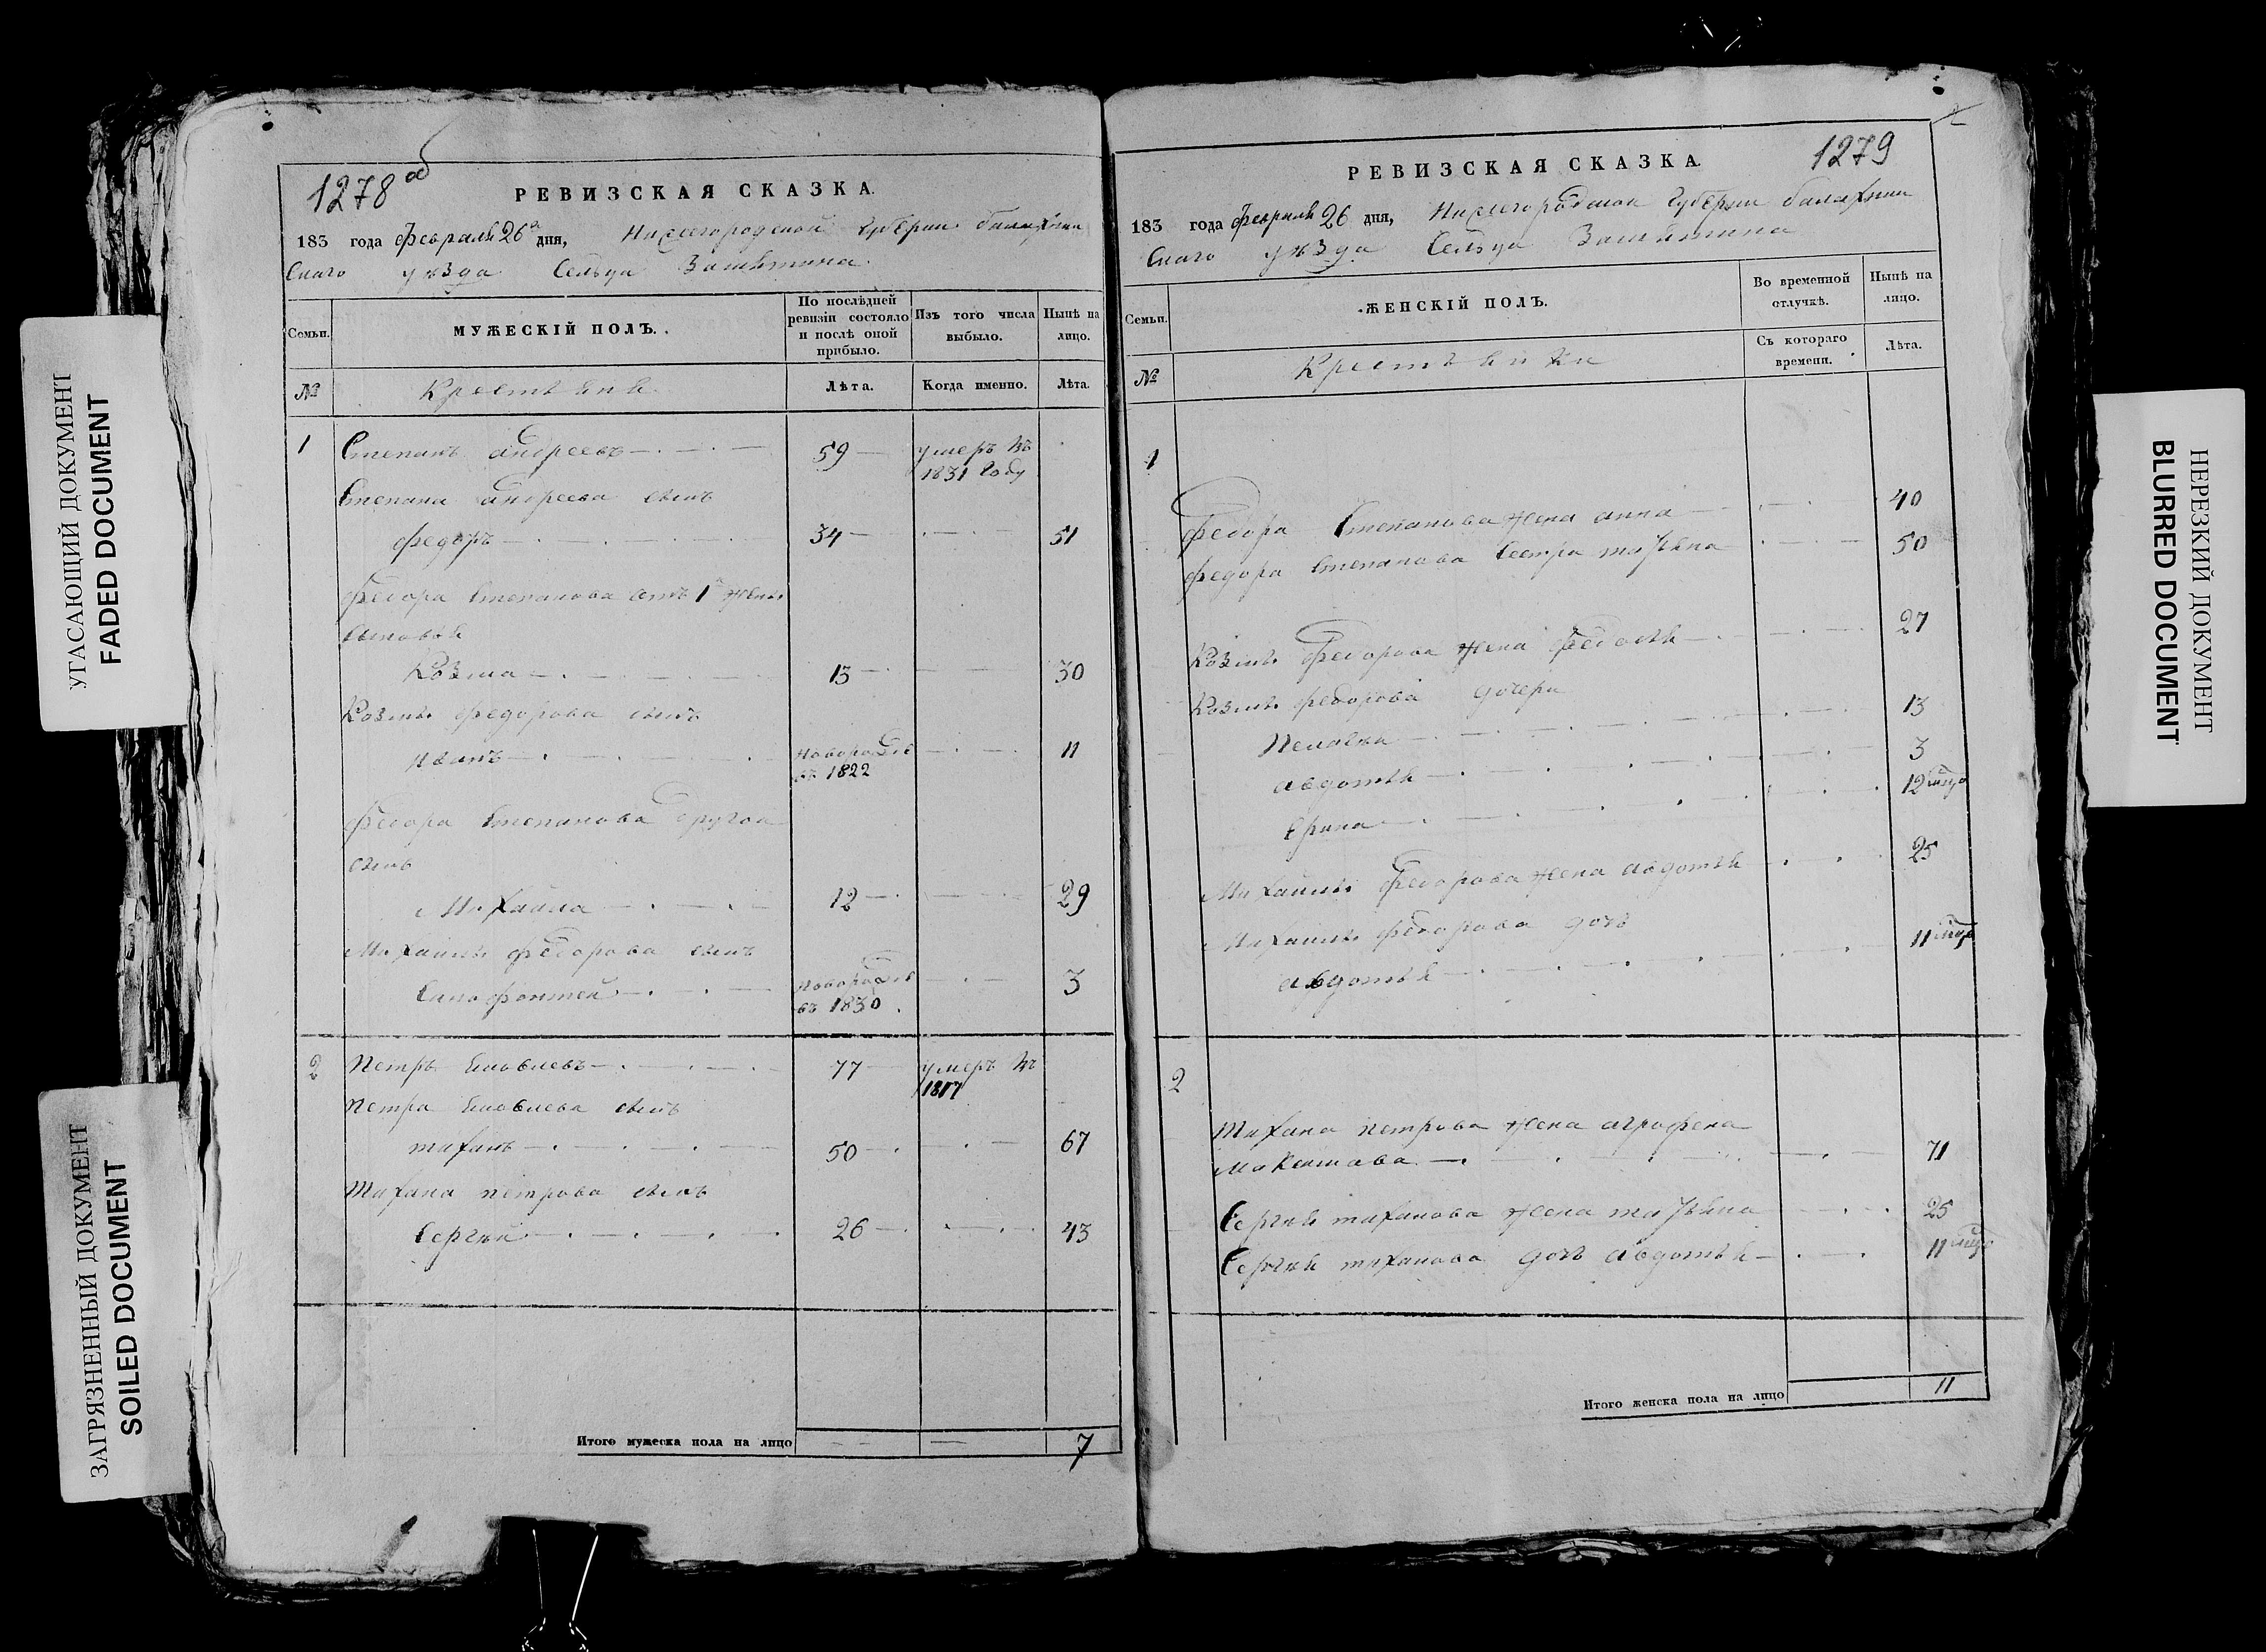 УГАСАЮЩИЙ ДОКУМЕНТ
FADED DOCUMENT
ЗАГРЯЗНЕННЫЙ ДОКУМЕНТ
SOILED DOCUMENT
1278 об
РЕВИЗСКАЯ СКАЗКА.
183 года февраля 26 дня, Нижегородской Губернии балахнин
Скаго уѣзда Сельца
Семьи. МУЖЕСКІЙ ПОЛЪ. По послѣдней ревизіи состояло и послѣ оной прибыло. Изъ того числа выбыло. Нынѣ на лицо.
№ Крестьяне Лѣта. Когда именно. Лѣта.
1 Степанъ андреевъ 59 умеръ въ
1831 Году
Степана андреева сынъ
федоръ 34 51
федора Степанова отъ 1й жены
Сыновья
Козма 13 30
Козмы федорова сынъ
иванъ новорожде 11
въ 1822
федора Степанова другой
сынъ
Михайла 12 29
Михайлы федорова сынъ
Ксинофонтей новорожде 3
въ 1830
2 Петръ Яковлевъ 77 умеръ въ
1817
Петра Яковлева сынъ
тиханъ 50 67
Тихана петрова сынъ
Сергѣй 26 43
Итого мужеска пола на лицо 7
1279
РЕВИЗСКАЯ СКАЗКА.
183 года февраля 26 дня, Нижегородской Губернии балахнин
Скаго уѣзда Сельца
Семьи. ЖЕНСКІЙ ПОЛЪ. Во временной отлучкѣ. Нынѣ на лицо.
№ Крестьянки Съ котораго времени. Лѣта.
1
федора Степанова жена анна 40
федора Степанова Сестра татьяна 50
Козмы федорова жена федосья 27
Козмы федорова дочери
Пелагея 13
авдотья 3
Ерина 12 мцо
Михайлы федорова жена авдотья 25
Михайлы федорова дочь
авдотья 11 мцо
2
Тихана петрова жена аграфена
71
Сергѣя тиханова жена татьяна 25
Сергѣя тиханова дочь авдотья 11 мцо
Итого женска пола на лицо 11
НЕРЕЗКИЙ ДОКУМЕНТ
BLURRED DOCUMENT